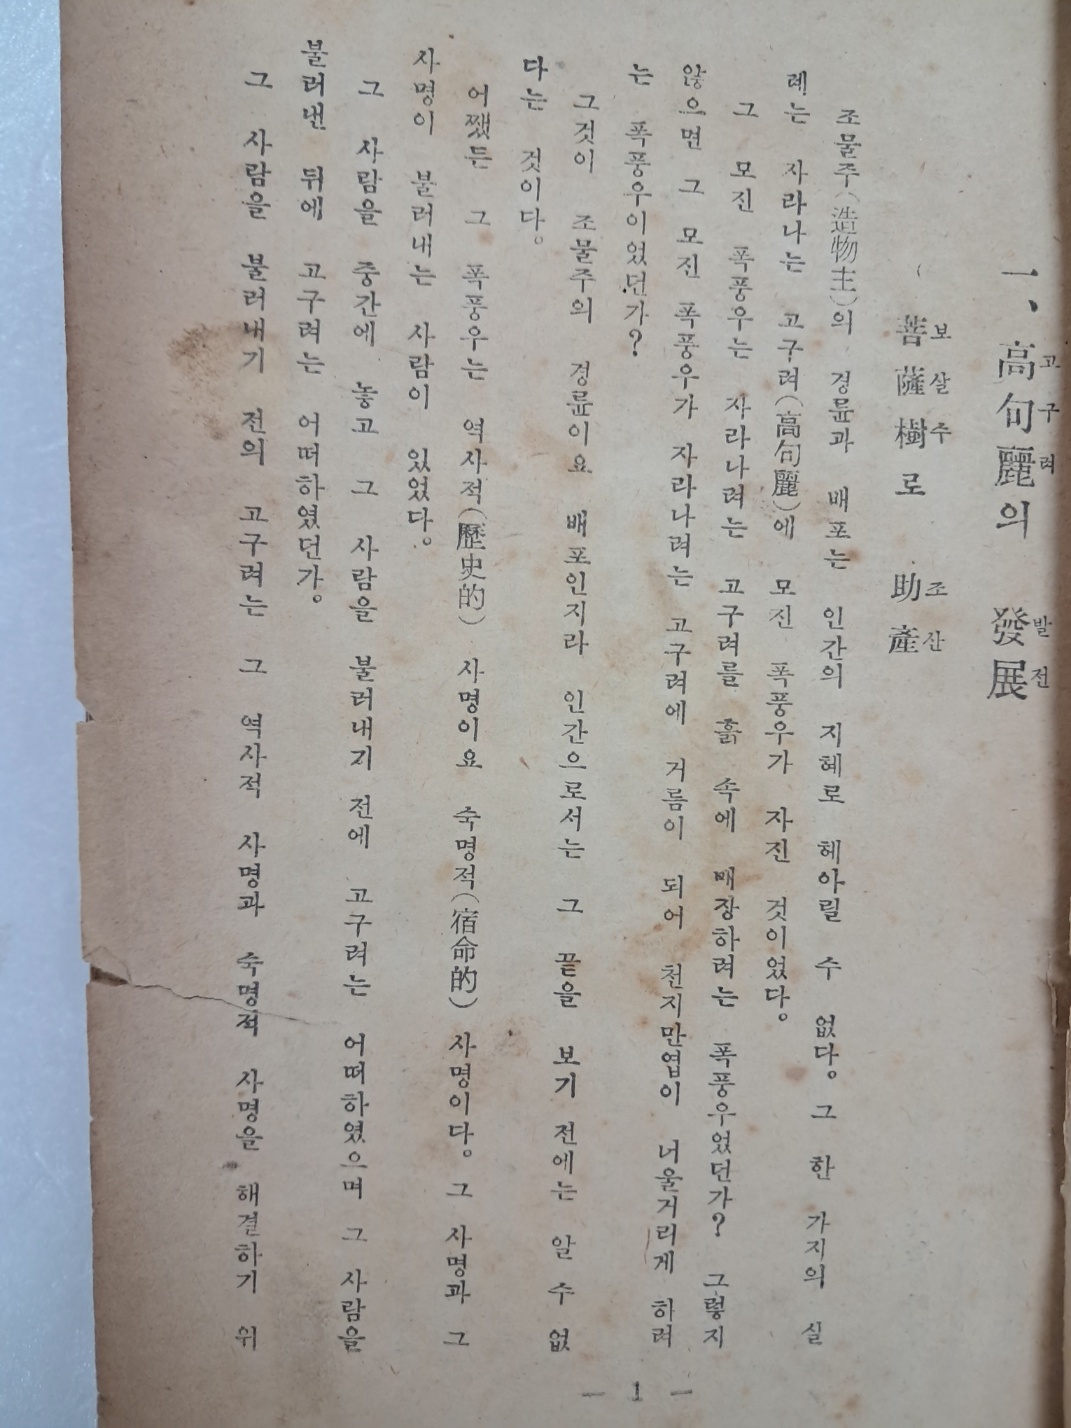 一、高句麗의 發展
고구려 발전
菩薩樹로 助產
보살수 조산
조물주(造物主)의 경륜과 배포는 인간의 지혜로 헤아릴 수 없다。그 한 가지의 실
례는 자라나는 고구려(高句麗)에 모진 폭풍우가 자진 것이었다。
그 모진 폭풍우는 자라나려는 고구려를 흙 속에 매장하려는 폭풍우었던가? 그렇지
않으면 그 모진 폭풍우가 자라나려는 고구려에 거름이 되어 천지만엽이 너울거리게 하려
는 폭풍우이었던가?
그것이 조물주의 경륜이요 배포인지라 인간으로서는 그 끝을 보기 전에는 알 수 없
다는 것이다。
어쨌든 그 폭풍우는 역사적(歷史的) 사명이요 숙명적(宿命的) 사명이다。그 사명과 그
사명이 불러내는 사람이 있었다。
그 사람을 중간에 놓고 그 사람을 불러내기 전에 고구려는 어떠하였으며 그 사람을
불러낸 뒤에 고구려는 어떠하였던가。
그 사람을 불러내기 전의 고구려는 그 역사적 사명과 숙명적 사명을 해결하기 위
— 1 —